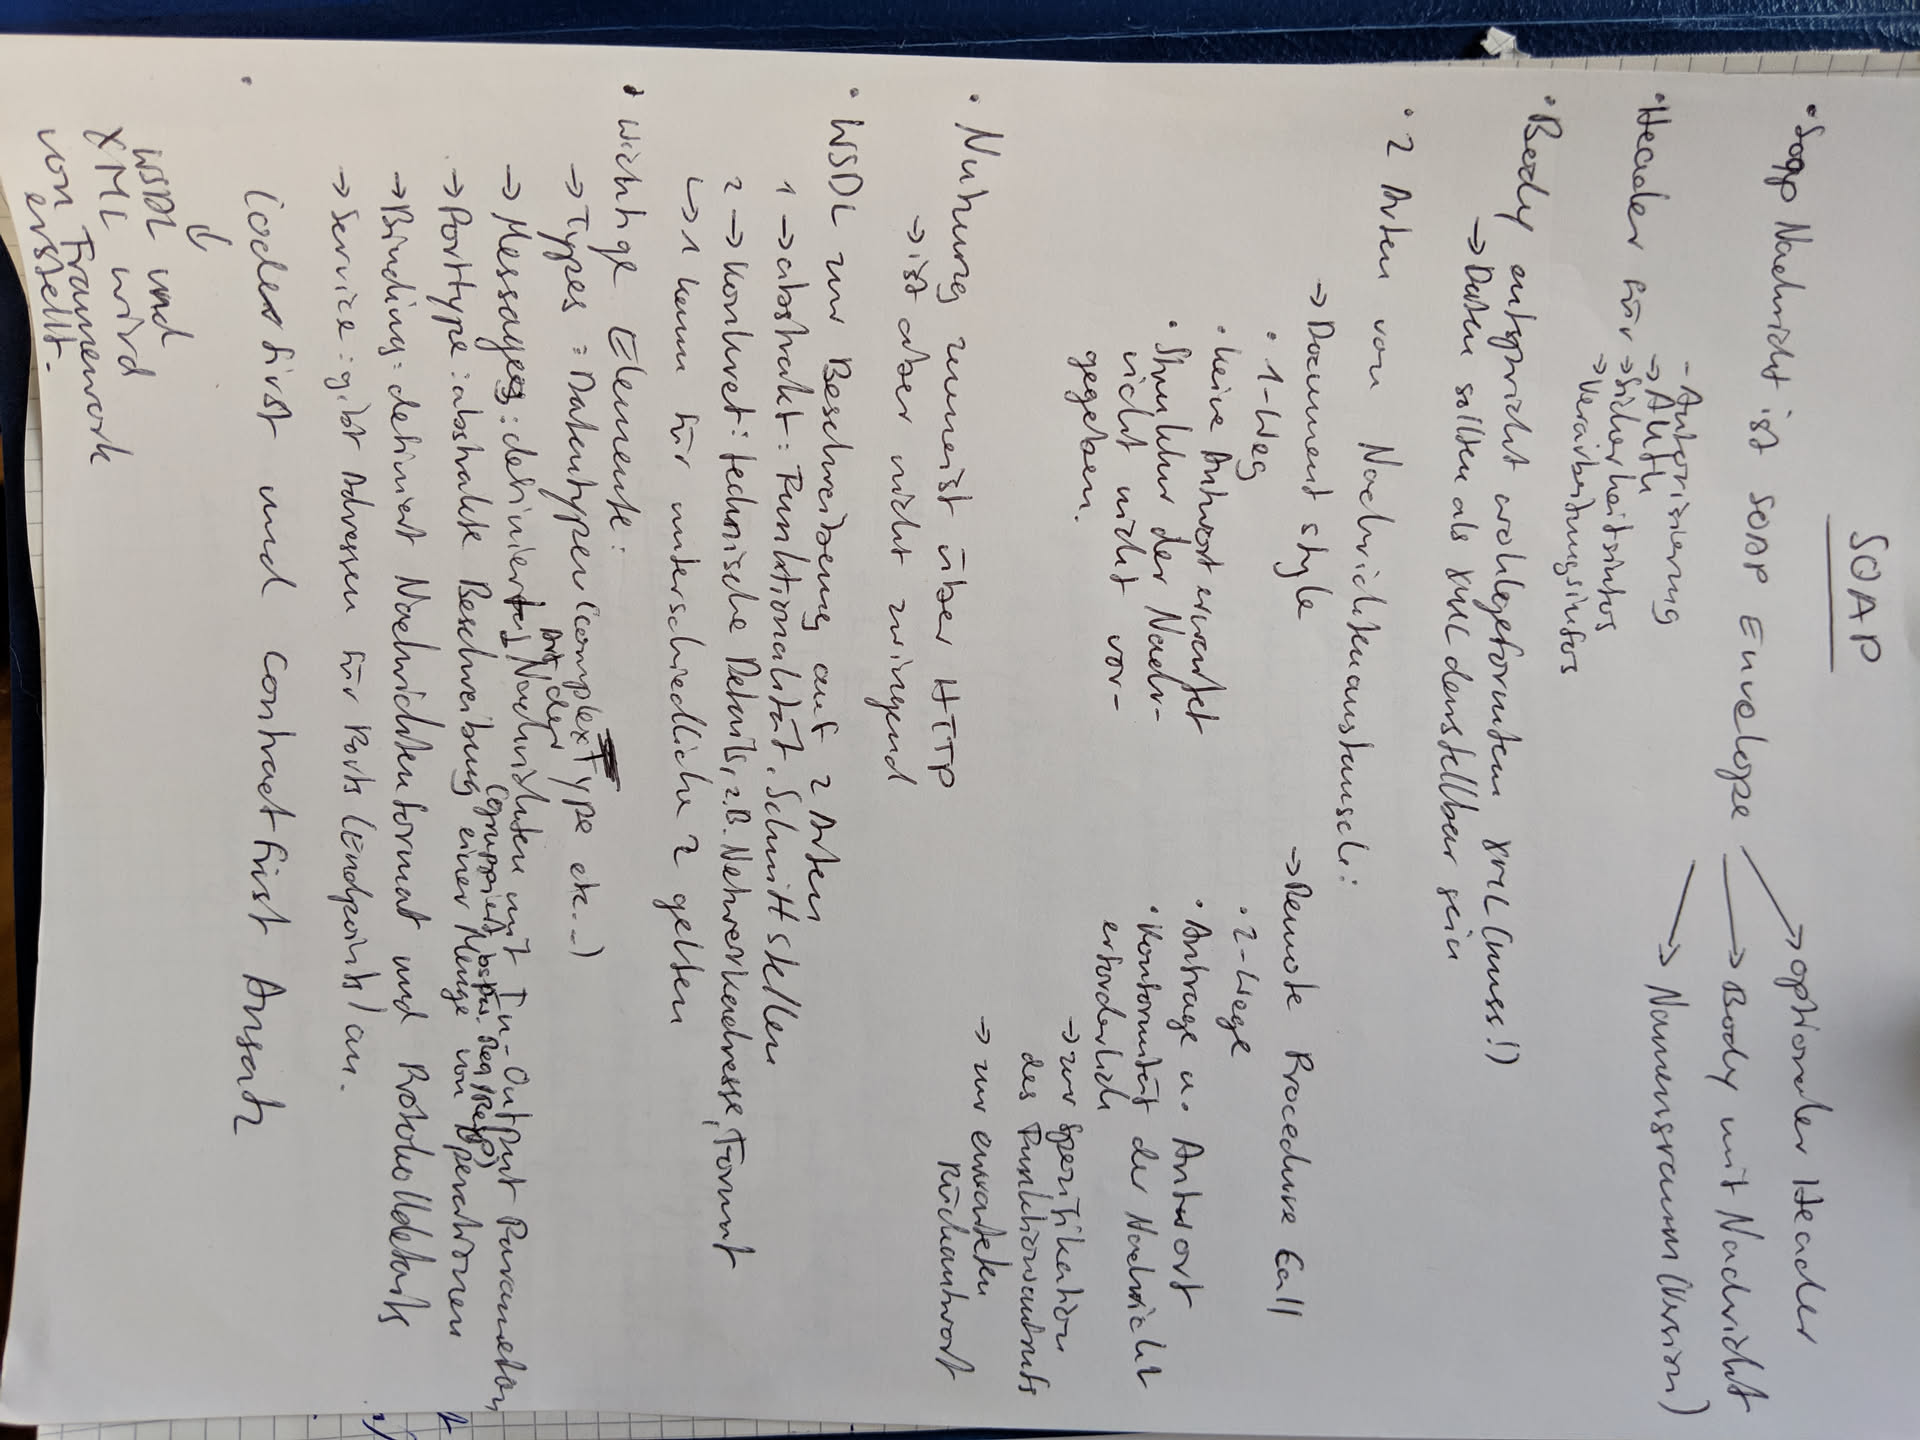 SOAP
• Soap Nachricht ist SOAP Envelope → optionaler Header
→ Body mit Nachricht
→ Namensraum (Version)
• Header für
- Autorisierung
→ Auth
→ Sicherheitsinfos
→ Verarbeitungsinfos
• Body entspricht wohlgeformten XML (muss!)
→ Daten sollten als XML darstellbar sein
• 2 Arten von Nachrichtenaustausch:
→ Document style
• 1-Weg
• keine Antwort erwartet
• Struktur der Nachr-
nicht nicht vor-
gegeben.
→ Remote Procedure Call
• 2-Wege
• Anfrage u. Antwort
• Konformität der Nachricht
erforderlich
→ zur Spezifikation
des Funktionsaufrufs
→ zur erwarteten
Rückantwort
• Nutzung zumeist über HTTP
→ ist aber nicht zwingend
• WSDL zur Beschreibung auf 2 Arten
1 → abstrakt: Funktionalität, Schnittstellen
2 → konkret: technische Details, z.B. Netzwerkadresse, Format
↳ 1 kann für unterschiedliche 2 gelten
• wichtige Elemente:
→ Types: Datentypen (complexType etc...)
→ Messages: definiert Art der Nachrichten mit In-Output Parametern
(gruppiert bspw. Req/Resp)
→ Porttype: abstrakte Beschreibung einer Menge von Operationen
→ Binding: definiert Nachrichtenformat und Protokolldetails
→ Service: gibt Adressen für Ports (Endpoints) an.
• Codefirst und Contractfirst Ansatz
↓
WSDL und
XML wird
von Framework
erstellt.